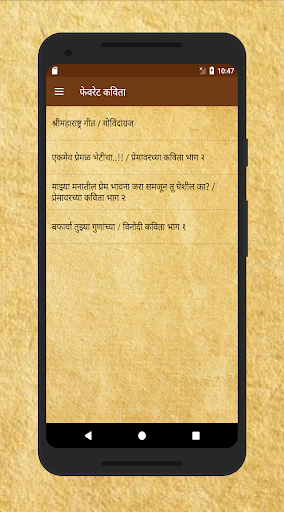 10:47
फेवरेट कविता
श्रीमहाराष्ट्र गीत / गोविंदाग्रज
एकमेव प्रेमळ भेटीचा..!! / प्रेमावरच्या कविता भाग २
माझ्या मनातील प्रेम भावना जरा समजून तू घेशील का? /
प्रेमावरच्या कविता भाग २
बफार्या तुझ्या गुणाच्या / विनोदी कविता भाग १